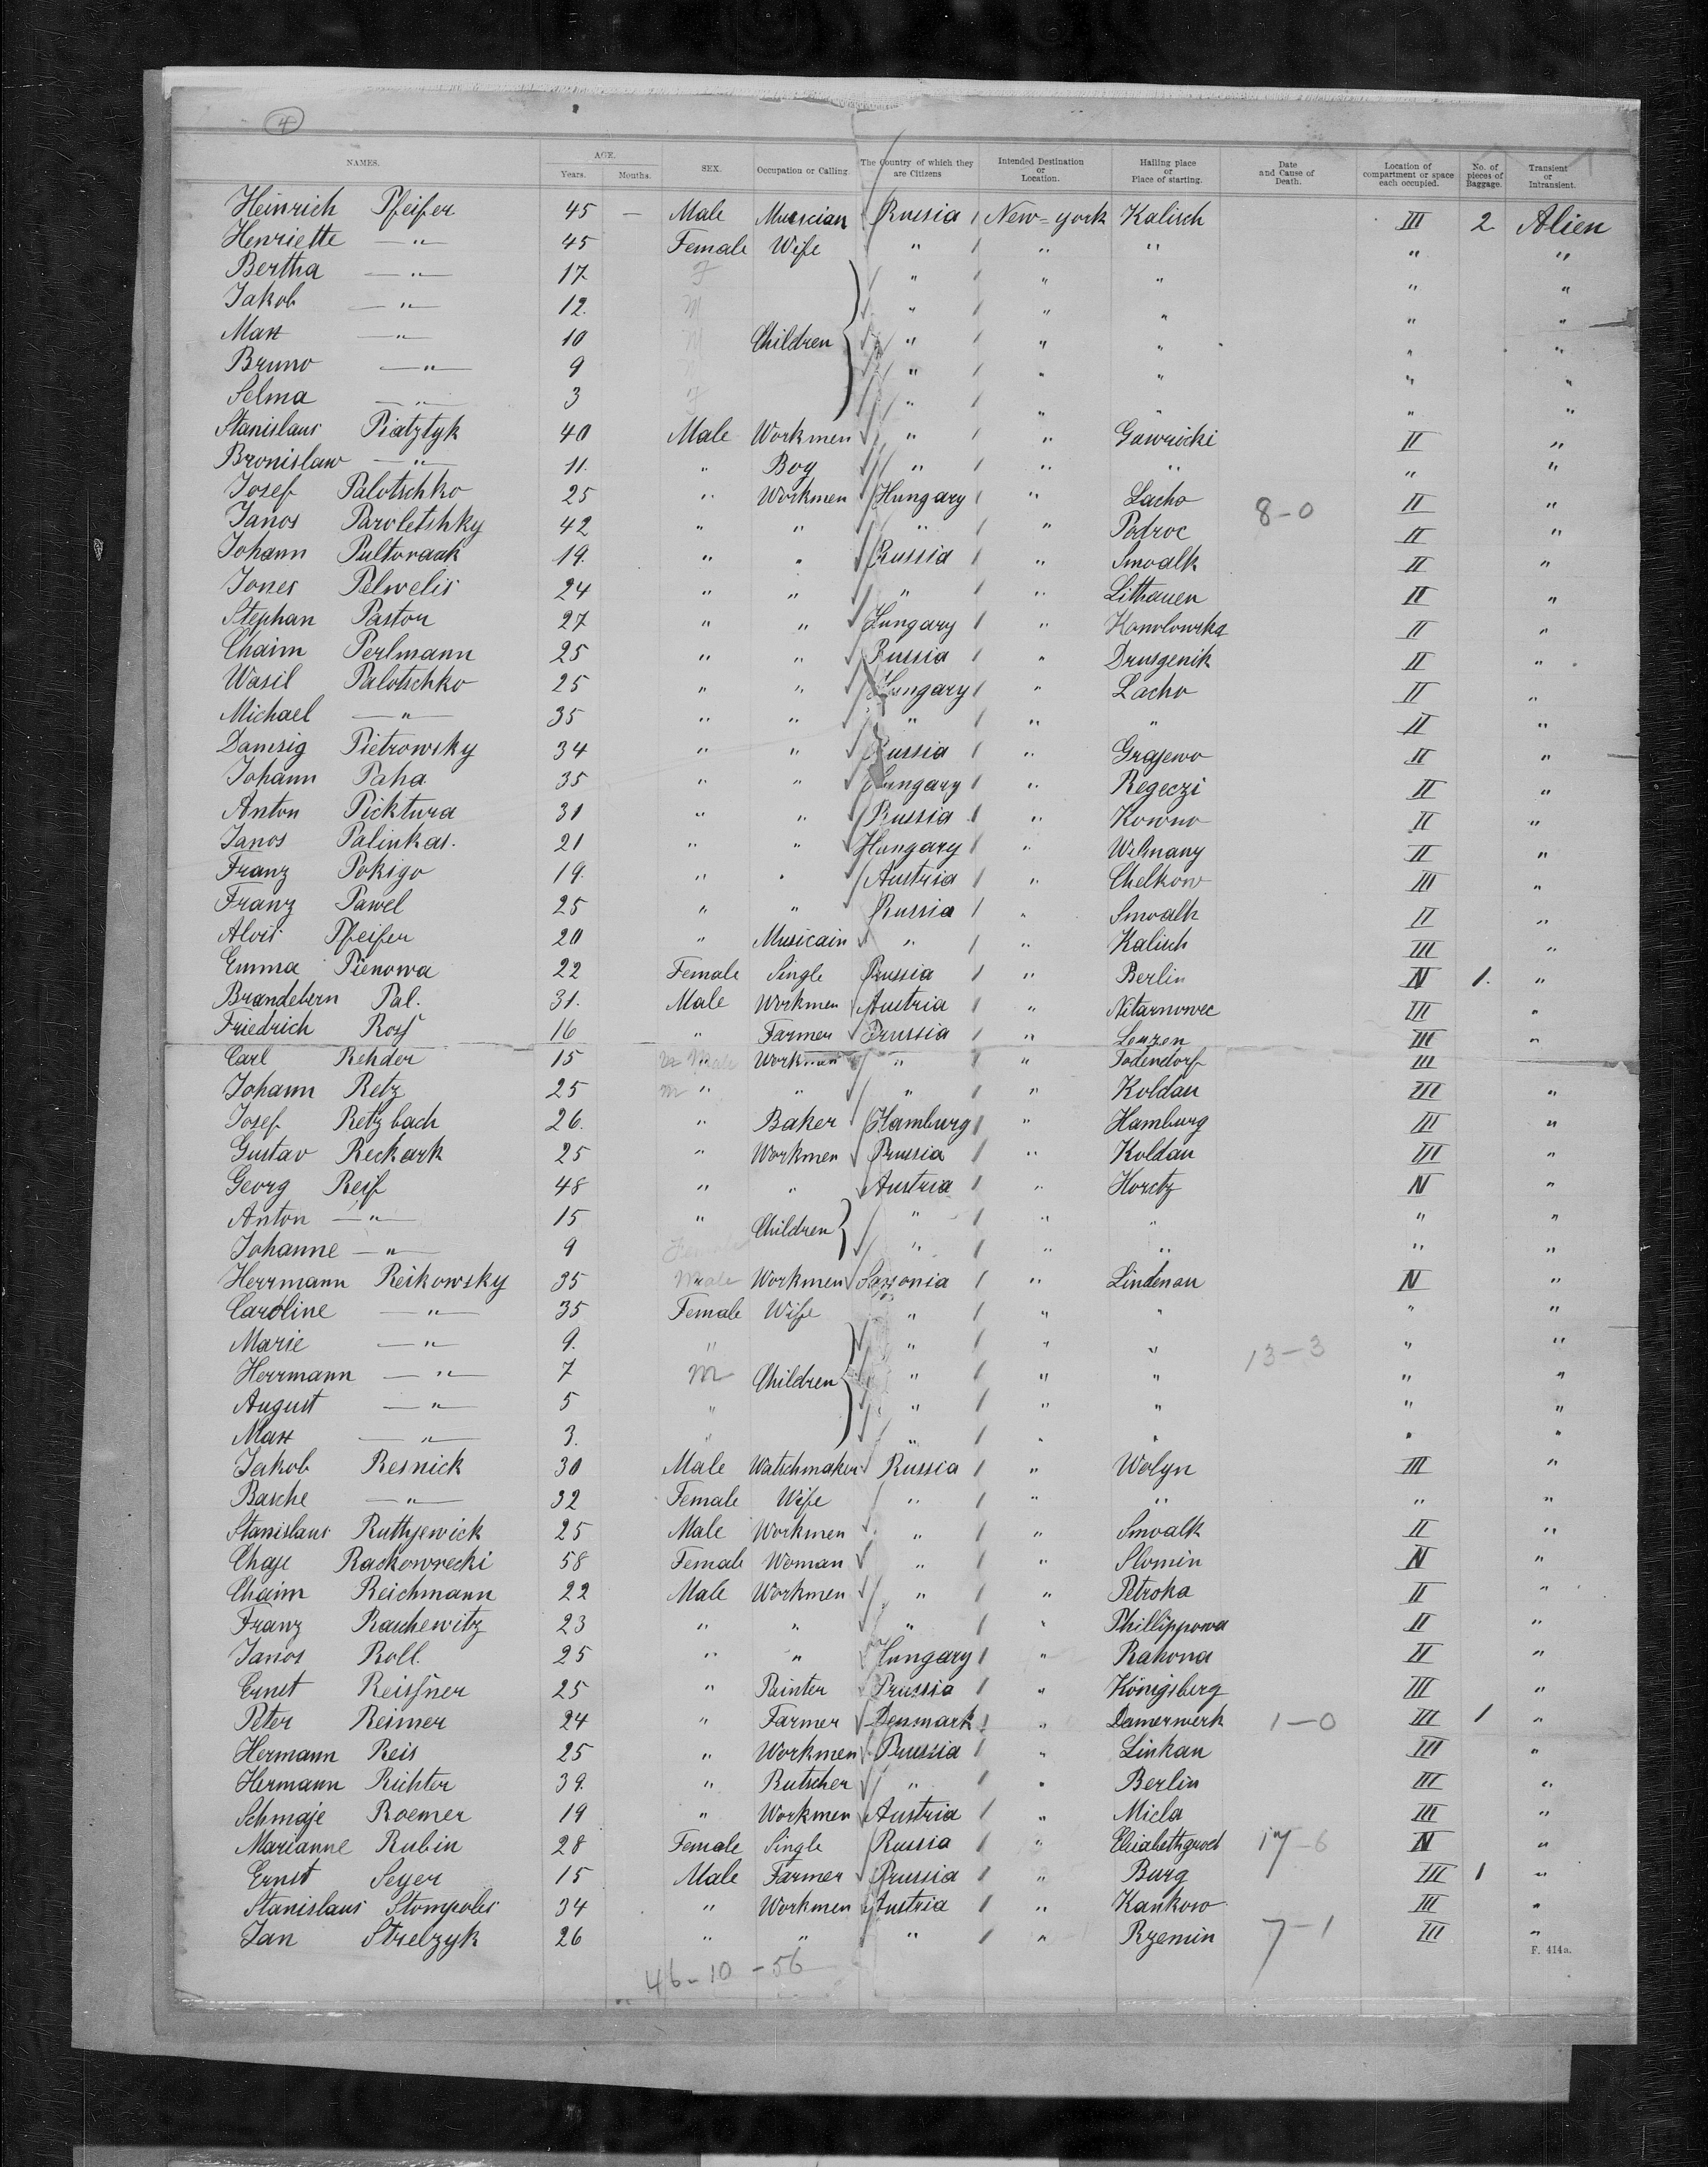 4
NAMES. AGE. Years. Months. SEX. Occupation or Calling. The Country of which they are Citizens Intended Destination or Location. Hailing place or Place of starting. Date and Cause of Death. Location of compartment or space each occupied. No. of pieces of Baggage. Transient or Intransient.
Heinrich Pfeifer 45 — Male Muscian Russia New=york Kalisch III 2 Alien
Henriette —"— 45 Female Wife " " " " "
Bertha —"— 17 F " " " " "
Jakob —"— 12. M " " " " "
Max —"— 10 M Children " " " " "
Bruno —"— 9 " " " " "
Selma —"— 3 F " " " " "
Stanislaus Piatztyk 40 Male Workmen " " Gawricki II "
Bronislaw —"— 11. " Boy " " " " "
Josef Palotschko 25 " Workmen Hungary " Lacho 8-0 II "
Janos Paroletshky 42 " " " " Podroc II "
Johann Pultoraak 19. " " Russia " Smoalk II "
Jones Pelwelis 24 " " " " Litthauen II "
Stephan Pastor 27 " " Hungary " Konolowska II "
Chaim Perlmann 25 " " Russia " Drusgenik II "
Wasil Palotschko 25 " " Hungary " Lacho II "
Michael —"— 35 " " " " " II "
Damsig Pietrowsky 34 " " Russia " Grajewo II "
Johann Paha 35 " " Hungary " Regeczi II "
Anton Picktura 31 " " Russia " Kowno II "
Janos Palinkas. 21 " " Hungary " Wilmany II "
Franz Pokigo 19. " " Austria " Chelkow III "
Franz Pawel 25 " " Russia " Smoalk II "
Alois Pfeifer 20 " Musicain " " Kalisch III "
Emma Pienowa 22 Female Single Prussia " Berlin N 1. "
Brandebern Pal. 31. Male Workmen Austria " Nitarnowec III "
Friedrich Ross 16 " Farmer Prussia " Lenzen III "
Carl Rehder 15 m Male Workman " " Todendorf III
Johann Retz 25 m " " " " Koldau III "
Josef Retzbach 26. " Baker Hamburg " Hamburg III "
Gustav Reckark 25 " Workmen Prussia " Koldau III "
Georg Reif 48 " " Austria " Horetz N "
Anton —"— 15 " Children " " " " "
Johanne —"— 9 " " " " "
Herrmann Reikowsky 35 Male Workmen Saxonia " Lindenau N "
Caroline —"— 35 Female Wife " " " " "
Marie —"— 9. " " " " 13-3 " "
Herrmann —"— 7 M Children " " " " "
August —"— 5 " " " " " "
Max —"— 3. " " " " " "
Jakob Resnick 30 Male Watschmaker Russia " Wolyn III "
Basche —"— 32 Female Wife " " " " "
Stanislaus Ruthjewick 25 Male Workmen " " Smoalk II "
Chaje Rackowrecki 58 Female Woman " " Slomin N "
Chaim Reichmann 22 Male Workmen " " Petroka II "
Franz Raschewitz 23 " " " " Phillippowa II "
Janos Roll. 25 " " Hungary " Rahona II "
Ernst Reissner 25 " Painter Prussia " Königsberg III "
Peter Reimer 24 " Farmer Denmark " Damerwerk 1-0 III 1 "
Hermann Reis 25 " Workmen Prussia " Linkau III "
Hermann Richter 39. " Butscher " " Berlin III "
Schmaje Roemer 19 " Workmen Austria " Micla III "
Marianne Rubin 28 Female Single Russia " Elisabethgrod 17-6 N "
Ernst Seyer 15 Male Farmer Prussia " Burg III 1 "
Stanislaus Stompoles 34 " Workmen Austria " Kankow III "
Jan Strelzyk 26 " " " " Rzemin 7-1 III "
F. 414a.
46-10-56